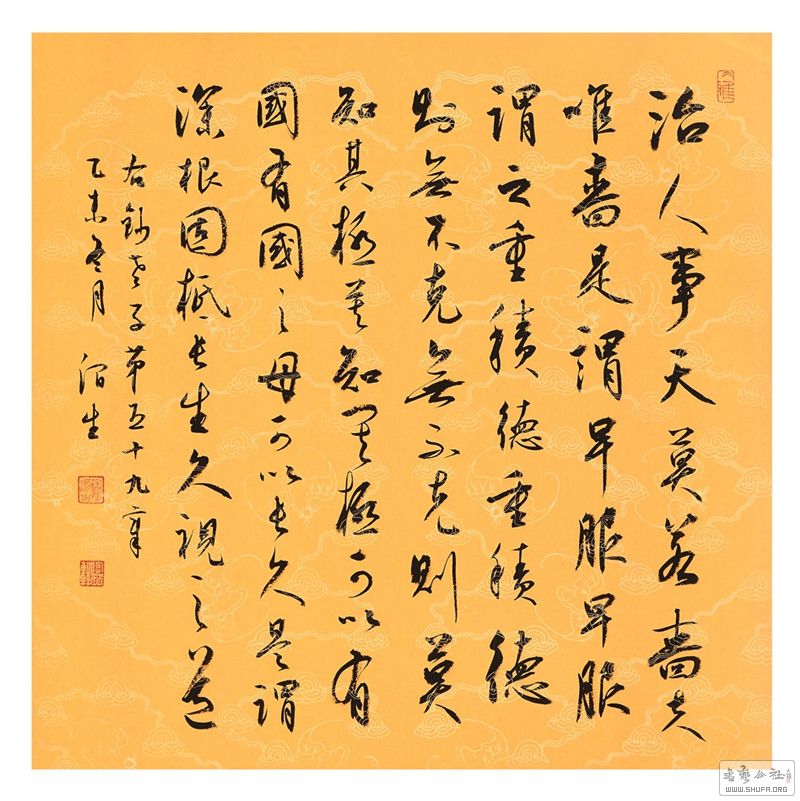 治人事天莫若嗇夫
唯嗇是謂早服早服
謂之重積德重積德
則無不克無不克則莫
知其極莫知其極可以有
國有國之母可以長久是謂
深根固柢長生久視之道
右老子第五十九章
乙未冬月 生
WWW.SHUFA.ORG